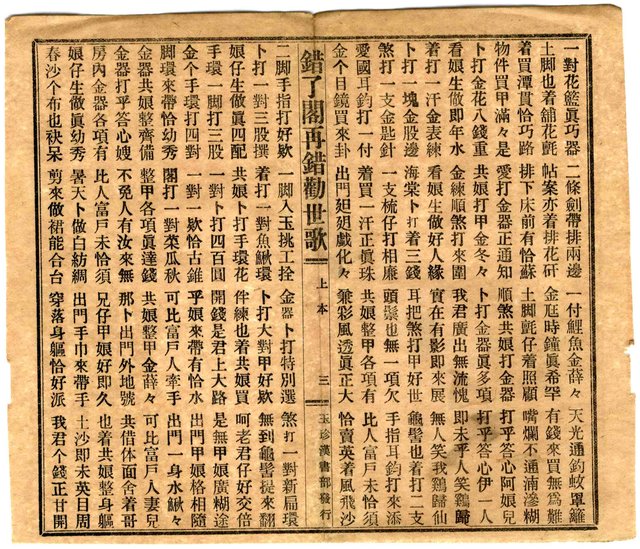 一對花籃眞巧器 二條劍帶排兩邊 一付鯉魚金薛々 天光通鈞蚊罩籬
土脚也着舖花氈 帖案亦着排花矸 金庭時鐘眞希罕 有錢來買無為難
着買潭貫恰巧路 排下床前有恰蘇 土脚氈仔着照顧 嘴爛不通湳滲糊
物件買甲滿々是 愛打金器正通知 順煞共娘打金器 打乎答心阿娘兒
卜打金花八錢重 共娘打甲金冬々 卜打金器眞多項 打乎答心伊一人
看娘生做即年水 金練順煞打來圍 我君廣出無流愧 即未乎人笑鷄歸
着打一汗金表練 看娘生做好人緣 實在有影即來展 無人笑我鷄歸仙
卜打一塊金股邊 海棠卜打着三錢 耳把煞打甲好世 龜髻也着打二支
煞打一支金匙針 一支梳仔打相廉 頭鬃也無一項欠 手指耳鈎打來添
愛國耳鈎打一付 着買一汗正眞珠 共娘整甲各項有 比人富戶未恰須
金个目鏡買來卦 出門𨑨迌戲化々 兼彩風透眞正大 恰賣英着風飛沙
錯了閣再錯勸世歌 上本 三 玉珍漢書部發行
二脚手指打好欵 一脚入玉挑工拴 金器卜打特別選 煞打一對新扁環
卜打一對三股撰 着打一對魚鰍環 卜打大對甲好欵 無到龜髻提來翻
娘仔生做眞四配 共娘卜打手環花 伴練也着共娘買 呵老君仔好交倍
手環一脚打三股 一對卜打四百圓 開錢是君上大路 是無甲娘廣糊途
金个手環打四對 一對一欵恰古錐 乎娘來帶有恰水 出門甲娘格相隨
脚環來帶恰幼秀 閣打一對菜瓜秋 可比富戶人牽手 出門一身水鰍々
金器共娘整齊備 整甲各項眞達錢 共娘整甲金薛々 可比富戶人妻兒
金器打乎答心嫂 不免人有汝來無 那卜出門外地號 共借体面舍着哥
房內金器各項有 比人富戶未恰須 兄仔甲娘好即久 也着共娘整身軀
娘仔生做眞幼秀 暑天卜做白紡綢 出門手巾來帶手 土沙即未英目周
春沙个布也袂呆 剪來做裙能合台 穿落身軀恰好派 我君个錢正甘開